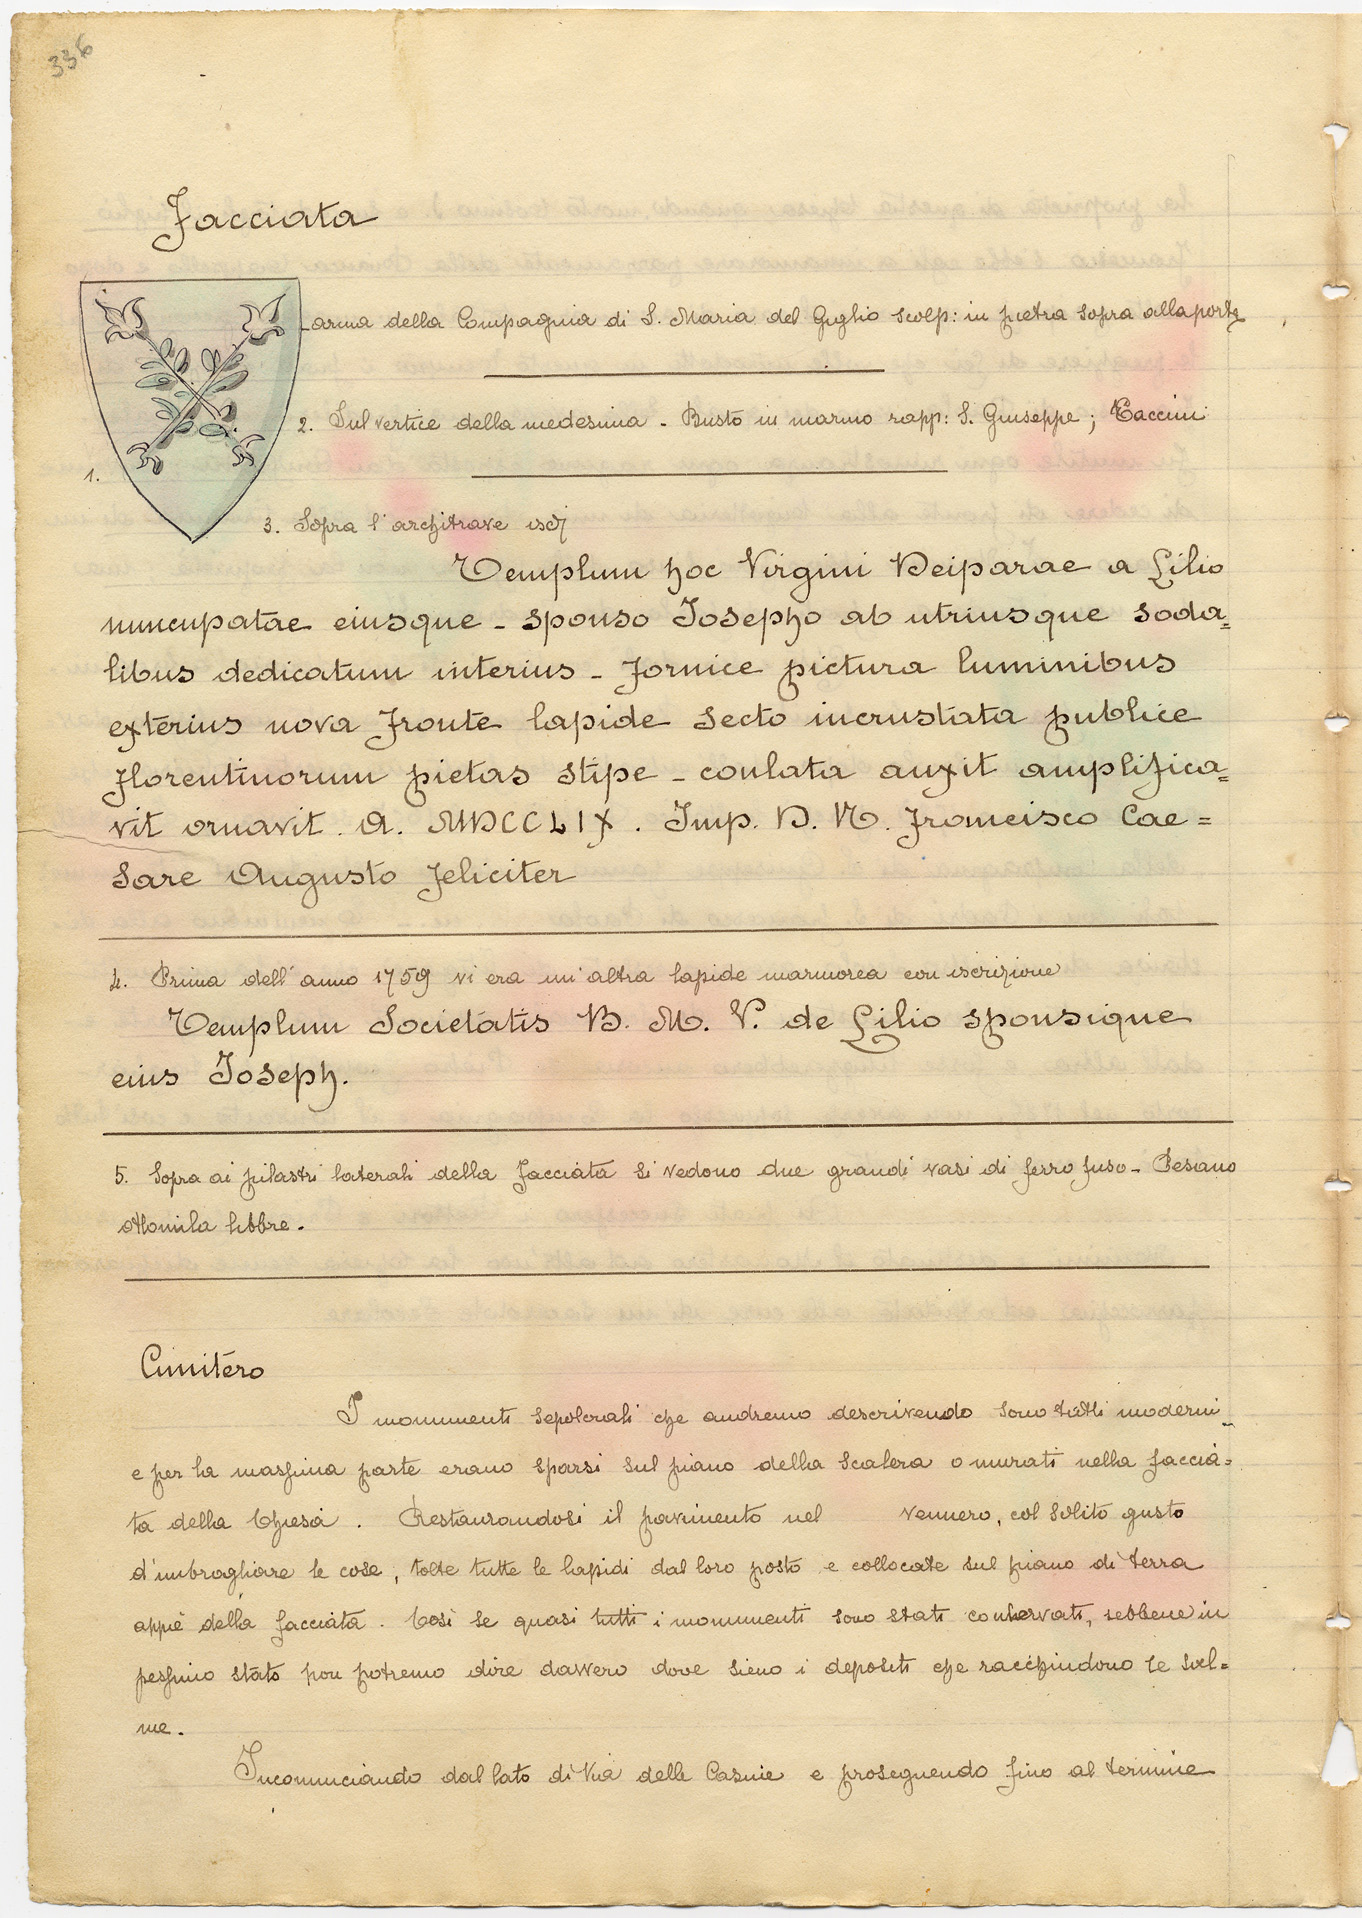 336
Facciata
arma della Compagnia di S. Maria del Giglio scolp: in pietra sopra alla porta
2. Sul vertice della medesima - Busto in marmo rapp: S. Giuseppe; Caccini
1.
3. Sopra l'architrave iscr
Templum hoc Virgini Deiparae a Lilio
nuncupatae eiusque - sponso Josepho ab utriusque soda=
libus dedicatum interius - fornice pictura luminibus
exterius nova fronte lapide secto incrustata publice
florentinorum pietas stipe - conlata auxit amplifica=
vit ornavit. A. MDCCLIX. Imp. D. N. Francisco Cae=
sare Augusto feliciter
4. Prima dell'anno 1759 vi era un'altra lapide marmorea con iscrizione
Templum Societatis B. M. V. de Lilio sponsique
eius Joseph.
5. Sopra ai pilastri laterali della facciata si vedono due grandi vasi di ferro fuso - Pesano
libbre.
Cimitero
I monumenti sepolcrali che andremo descrivendo sono tutti moderni
e per la massima parte erano sparsi sul piano della scalera o murati nella faccia=
ta della Chiesa. Restaurandosi il pavimento nel vennero, col solito gusto
d'imbrogliare le cose, tolte tutte le lapidi dal loro posto e collocate sul piano di terra
appiè della facciata. Così se quasi tutti i monumenti sono stati conservati, sebbene in
pessimo stato non potremo dire davvero dove sieno i depositi che racchiudono le sal=
me.
Incominciando dal lato di Via delle Casine e proseguendo fino al termine